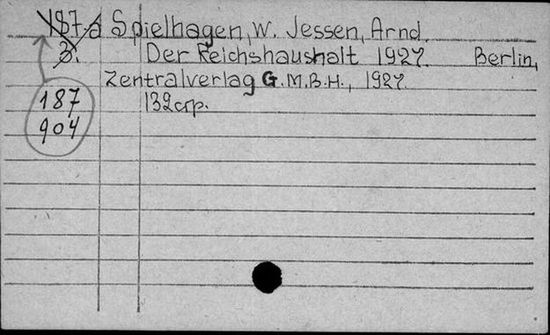 187a Spielhagen, W. Jessen, Arnd.
3. Der Reichshaushalt 1927. Berlin,
Zentralverlag G.M.B.H., 1927.
187 132стр.
904